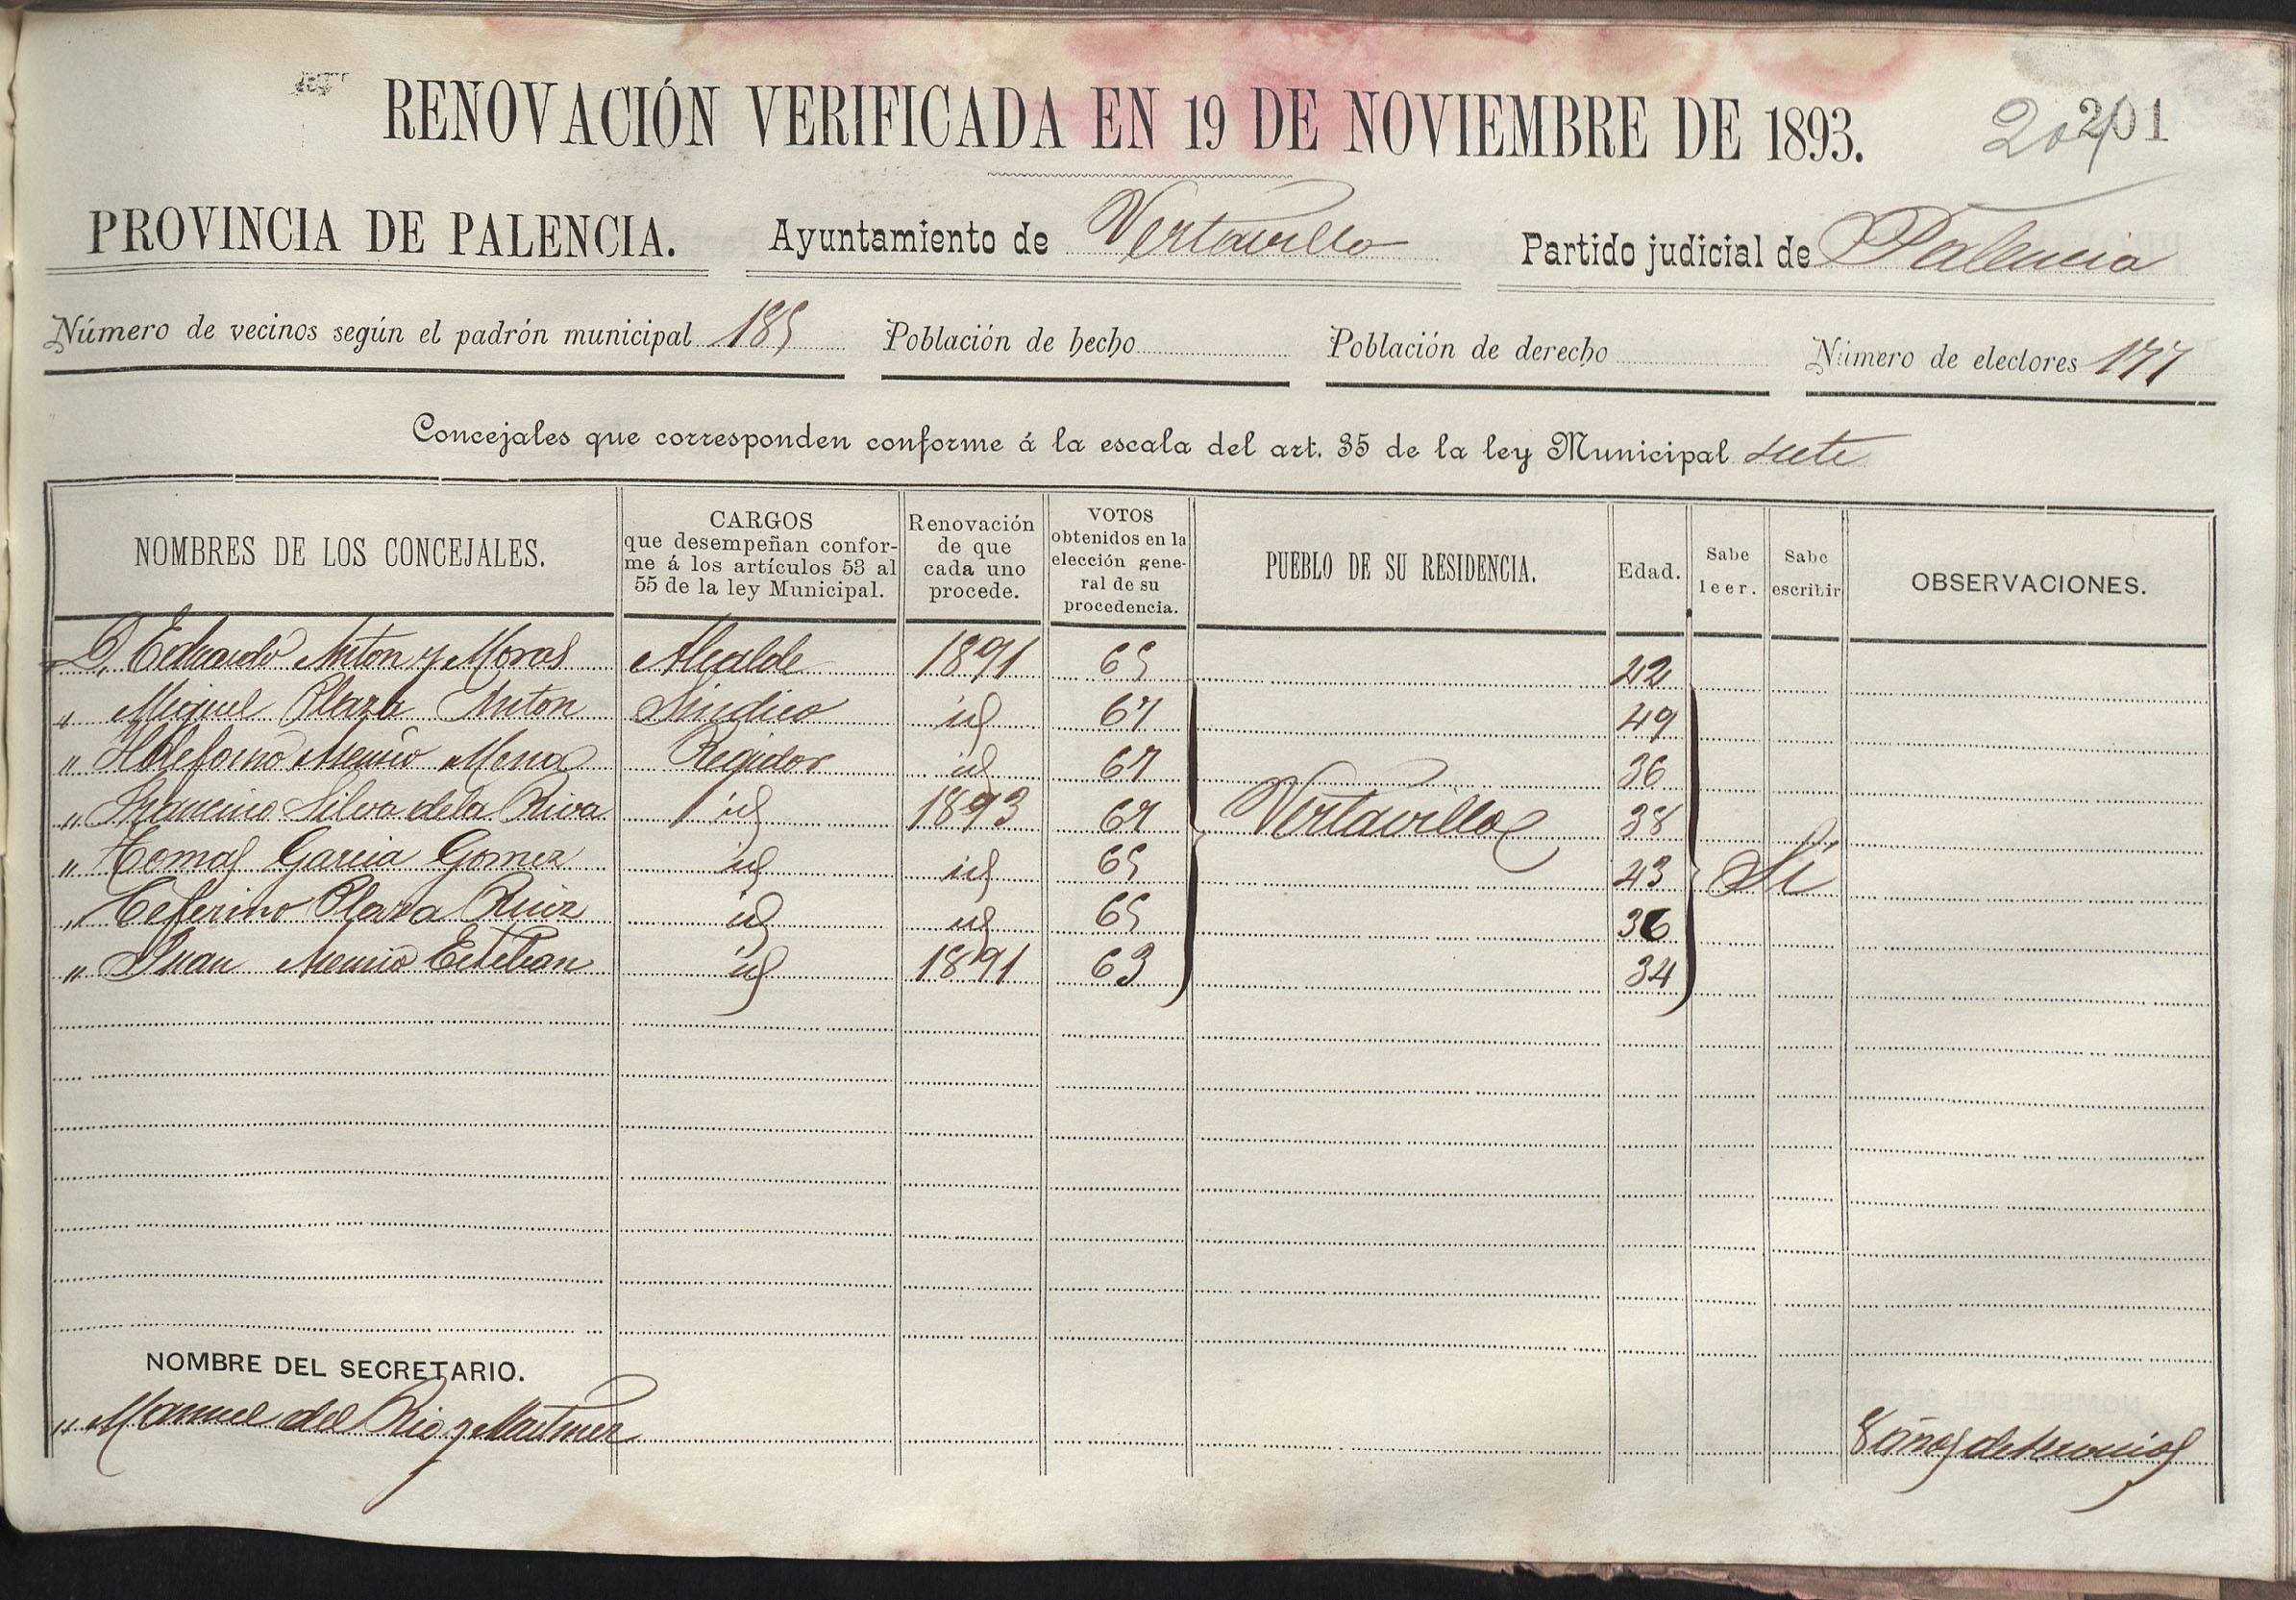 RENOVACIÓN VERIFICADA EN 19 DE NOVIEMBRE DE 1893.
204 201
PROVINCIA DE PALENCIA. Ayuntamiento de Vertavillo Partido judicial de Palencia
Número de vecinos según el padrón municipal 185 Población de hecho Población de derecho Número de electores 177
Concejales que corresponden conforme á la escala del art. 35 de la ley Municipal siete
NOMBRES DE LOS CONCEJALES. CARGOS que desempeñan conforme á los artículos 53 al 55 de la ley Municipal. Renovación de que cada uno procede. VOTOS obtenidos en la elección general de su procedencia. PUEBLO DE SU RESIDENCIA. Edad. Sabe leer. Sabe escribir OBSERVACIONES.
D. Eduardo Anton y Moras Alcalde 1891 65 42
" Miguel Plaza Anton Sindico id 67 49
" Ildefonso Asensio Mena Regidor id 67 36
" Francisco Silva de la Riva id 1893 67 Vertavillo 38
" Tomas Garcia Gomez id id 65 43 Si
" Ceferino Plaza Ruiz id id 65 36
" Juan Asensio Esteban id 1891 63 34
NOMBRE DEL SECRETARIO.
" Manuel del Rio y Martinez 8 años de servicios